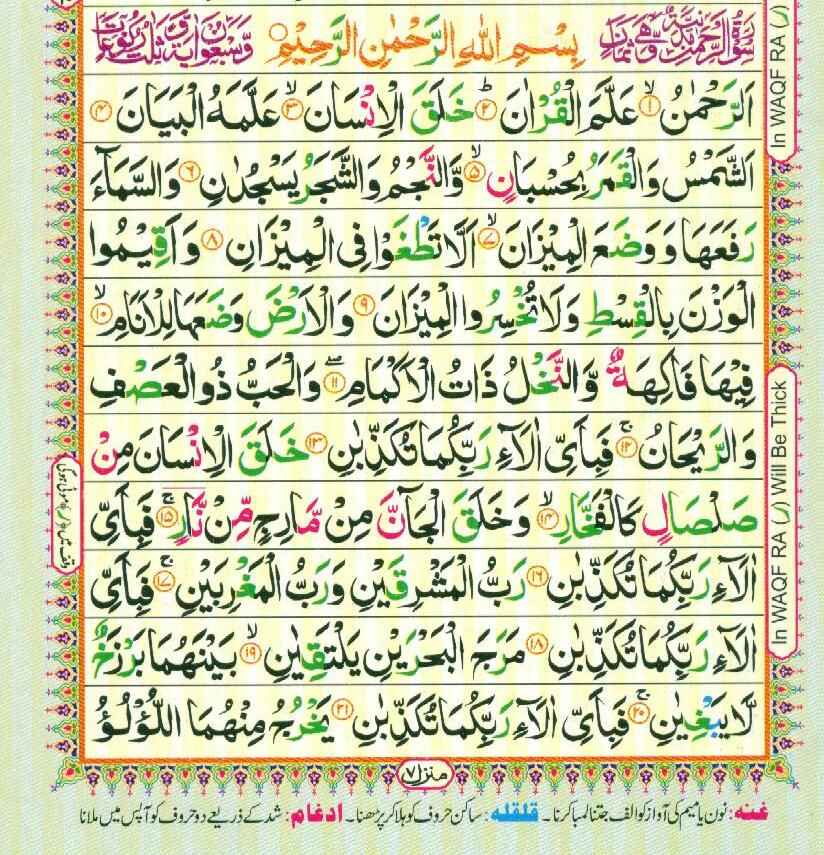 سُوْرَةُ الرَّحْمٰنِ مَدَنِيَّةٌ وَّهِيَ ثَمَانٌ بِسْمِ اللّٰهِ الرَّحْمٰنِ الرَّحِيْمِ وَّسَبْعُوْنَ اٰيَةً وَّثَلٰثُ رُكُوْعَاتٍ
اَلرَّحْمٰنُ ۙ﴿۱﴾ عَلَّمَ الْقُرْاٰنَ ؕ﴿۲﴾ خَلَقَ الْاِنْسَانَ ۙ﴿۳﴾ عَلَّمَهُ الْبَيَانَ ﴿۴﴾
اَلشَّمْسُ وَالْقَمَرُ بِحُسْبَانٍ ۙ﴿۵﴾ وَّالنَّجْمُ وَالشَّجَرُ يَسْجُدٰنِ ﴿۶﴾ وَالسَّمَآءَ
رَفَعَهَا وَوَضَعَ الْمِيْزَانَ ۙ﴿۷﴾ اَلَّا تَطْغَوْا فِى الْمِيْزَانِ ﴿۸﴾ وَاَقِيْمُوا
الْوَزْنَ بِالْقِسْطِ وَلَا تُخْسِرُوا الْمِيْزَانَ ﴿۹﴾ وَالْاَرْضَ وَضَعَهَا لِلْاَنَامِ ۙ﴿۱۰﴾
فِيْهَا فَاكِهَةٌ وَّالنَّخْلُ ذَاتُ الْاَكْمَامِ ۖ﴿۱۱﴾ وَالْحَبُّ ذُو الْعَصْفِ
وَالرَّيْحَانُ ۚ﴿۱۲﴾ فَبِاَىِّ اٰلَآءِ رَبِّكُمَا تُكَذِّبٰنِ ﴿۱۳﴾ خَلَقَ الْاِنْسَانَ مِنْ
صَلْصَالٍ كَالْفَخَّارِ ۙ﴿۱۴﴾ وَخَلَقَ الْجَآنَّ مِنْ مَّارِجٍ مِّنْ نَّارٍ ۚ﴿۱۵﴾ فَبِاَىِّ
اٰلَآءِ رَبِّكُمَا تُكَذِّبٰنِ ﴿۱۶﴾ رَبُّ الْمَشْرِقَيْنِ وَرَبُّ الْمَغْرِبَيْنِ ۚ﴿۱۷﴾ فَبِاَىِّ
اٰلَآءِ رَبِّكُمَا تُكَذِّبٰنِ ﴿۱۸﴾ مَرَجَ الْبَحْرَيْنِ يَلْتَقِيٰنِ ۙ﴿۱۹﴾ بَيْنَهُمَا بَرْزَخٌ
لَّا يَبْغِيٰنِ ۚ﴿۲۰﴾ فَبِاَىِّ اٰلَآءِ رَبِّكُمَا تُكَذِّبٰنِ ﴿۲۱﴾ يَخْرُجُ مِنْهُمَا اللُّؤْلُؤُ
In WAQF RA (ر)
In WAQF RA (ر) Will Be Thick
وقف میں (ر) موٹی ہوگی
منزل ۷
غنہ: نون یا میم کی آواز کو الف جتنا لمبا کرنا۔ قلقلہ: ساکن حروف کو ہلا کر پڑھنا۔ ادغام: شد کے ذریعے دو حروف کو آپس میں ملانا